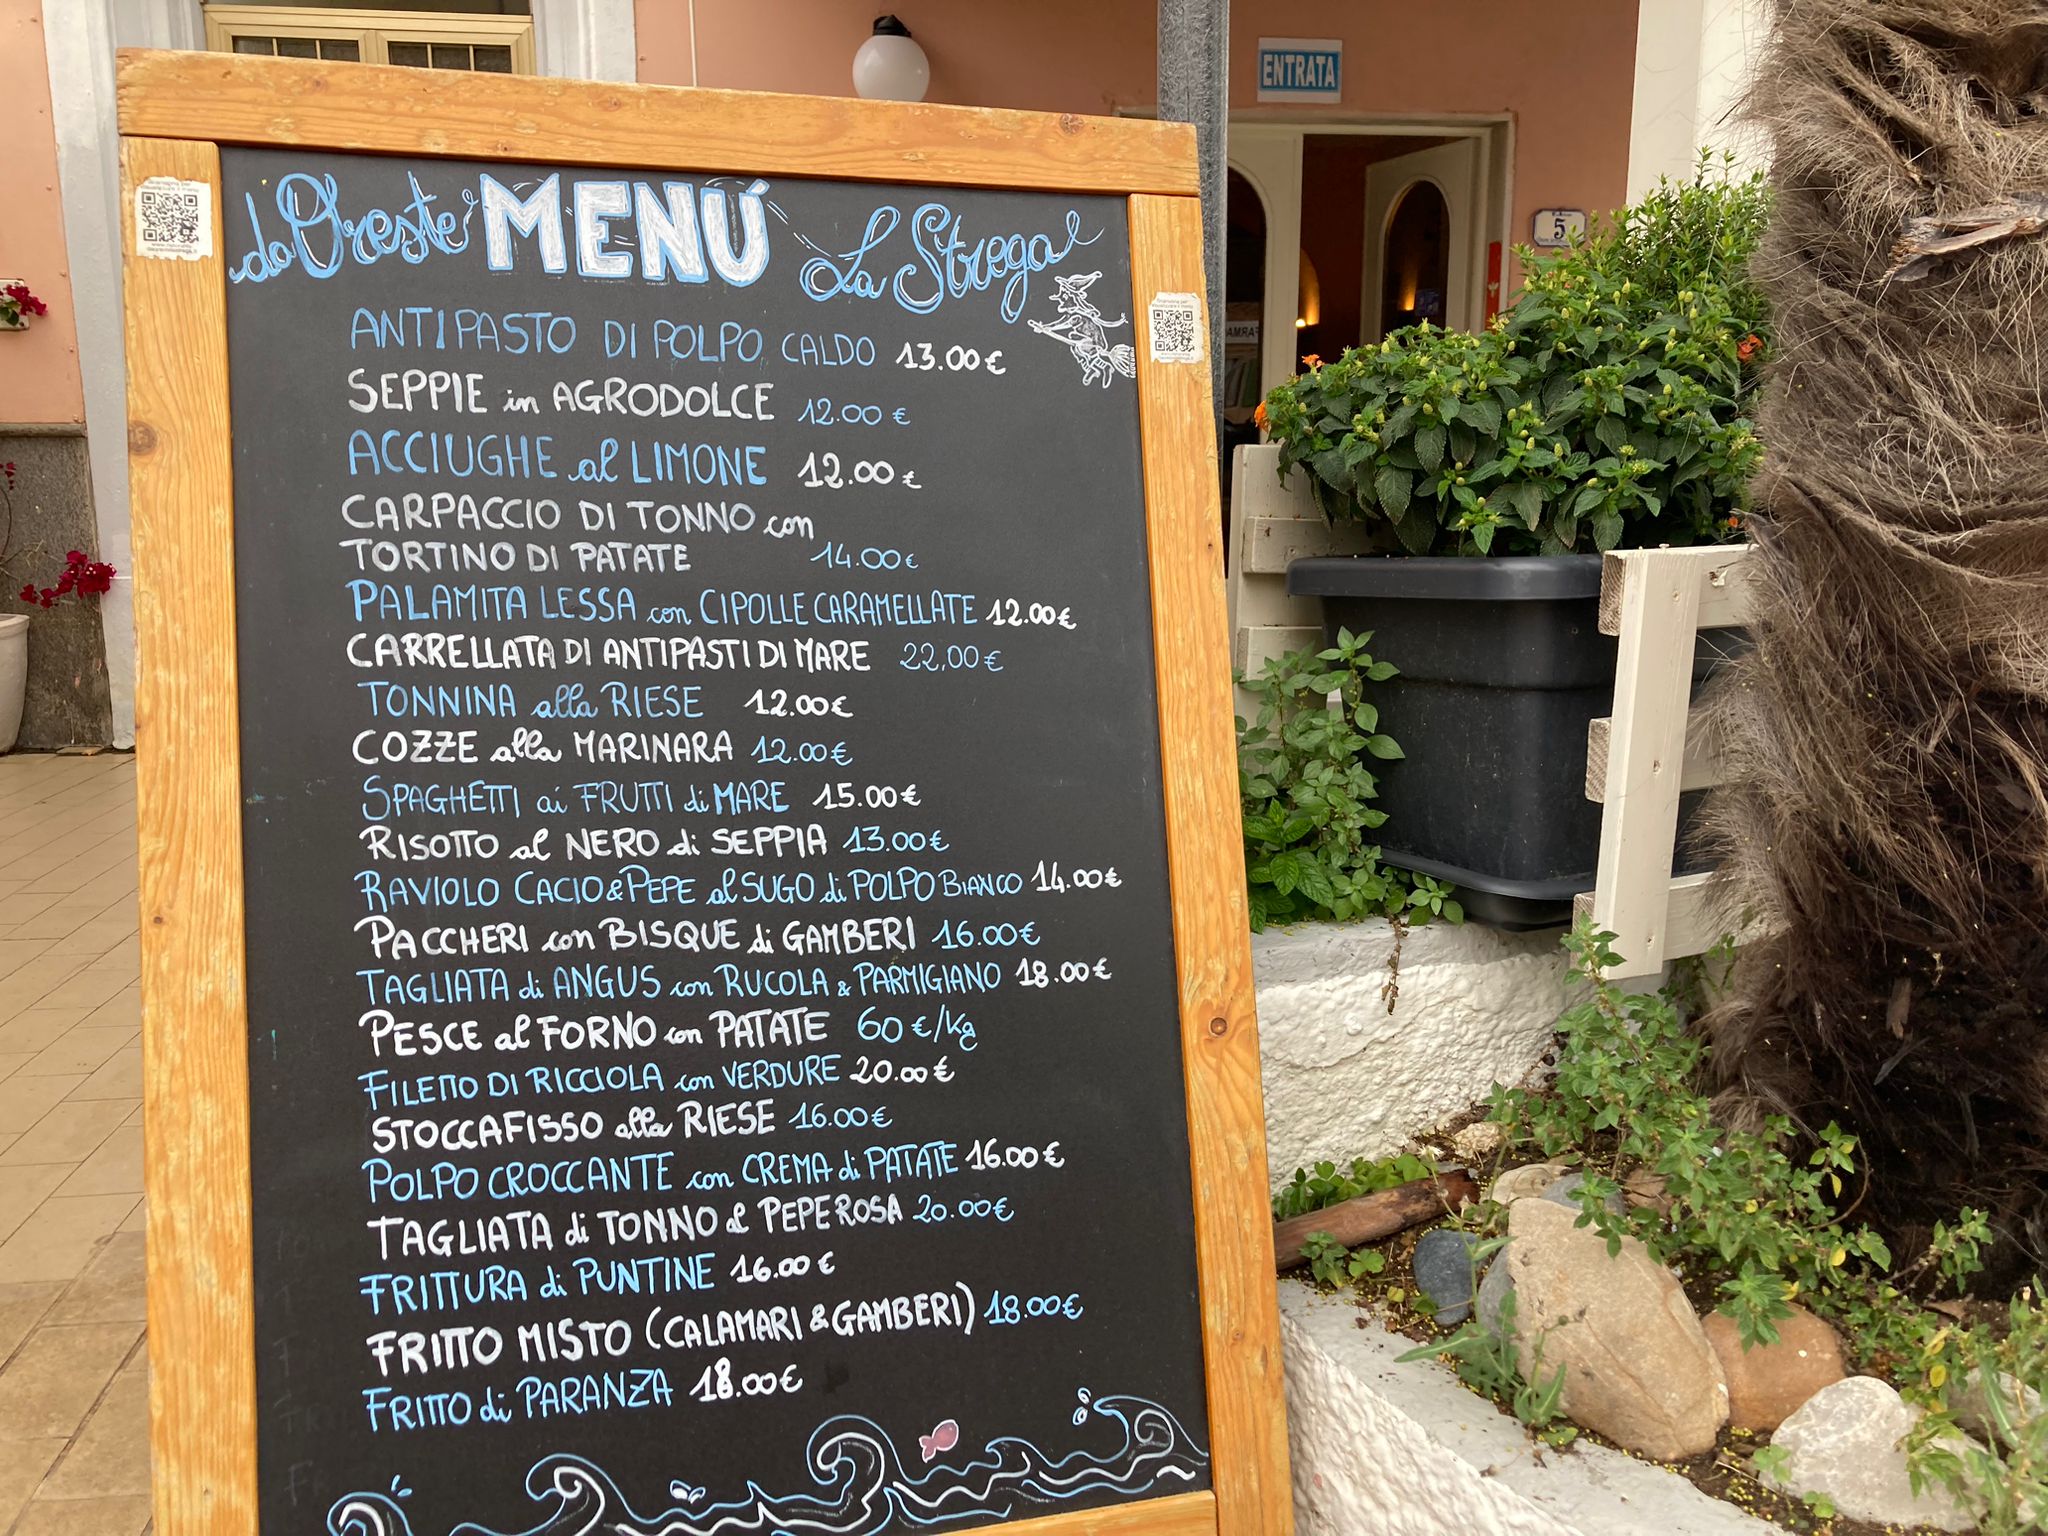 ENTRATA
5
da Oreste MENÚ La Strega
ANTIPASTO DI POLPO CALDO 13.00 €
SEPPIE in AGRODOLCE 12.00 €
ACCIUGHE al LIMONE 12.00 €
CARPACCIO DI TONNO con
TORTINO DI PATATE 14.00 €
PALAMITA LESSA con CIPOLLE CARAMELLATE 12.00€
CARRELLATA DI ANTIPASTI DI MARE 22,00 €
TONNINA alla RIESE 12.00€
COZZE alla MARINARA 12.00€
SPAGHETTI ai FRUTTI di MARE 15.00€
RISOTTO al NERO di SEPPIA 13.00€
RAVIOLO CACIO & PEPE al SUGO di POLPO BIANCO 14.00€
PACCHERI con BISQUE di GAMBERI 16.00€
TAGLIATA di ANGUS con RUCOLA & PARMIGIANO 18.00€
PESCE al FORNO con PATATE 60 €/Kg
FILETTO DI RICCIOLA con VERDURE 20.00 €
STOCCAFISSO alla RIESE 16.00€
POLPO CROCCANTE con CREMA di PATATE 16.00€
TAGLIATA di TONNO al PEPE ROSA 20.00€
FRITTURA di PUNTINE 16.00 €
FRITTO MISTO (CALAMARI & GAMBERI) 18.00€
FRITTO di PARANZA 18.00€